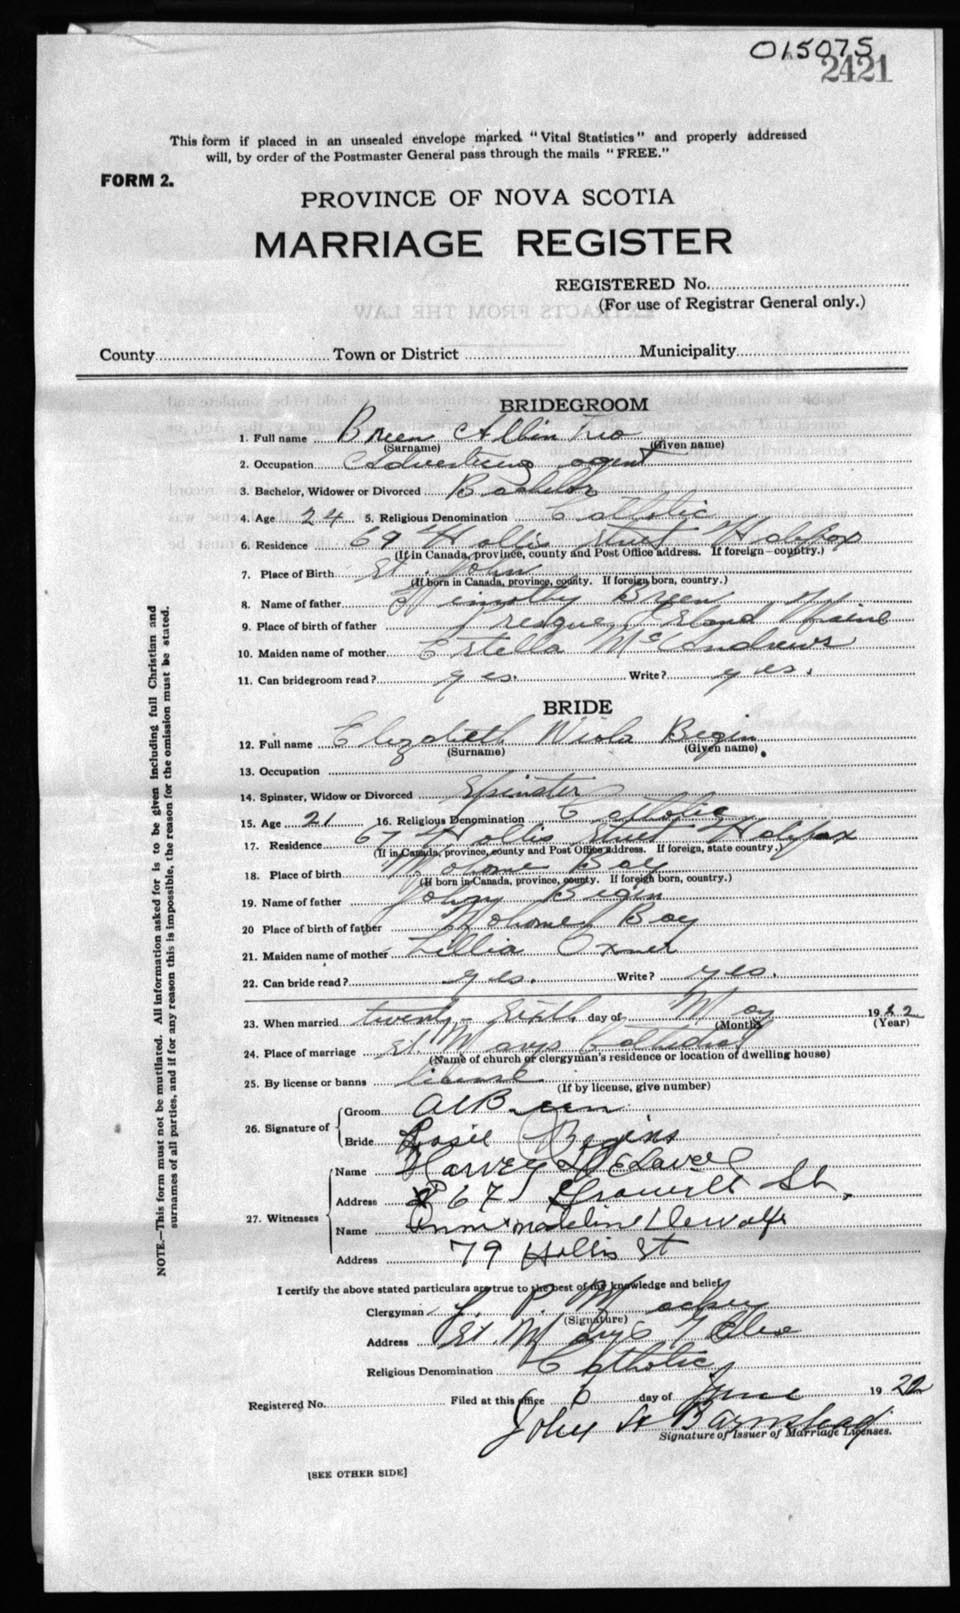 015075
2421
This form if placed in an unsealed envelope marked "Vital Statistics" and properly addressed
will, by order of the Postmaster General pass through the mails "FREE."
FORM 2.
PROVINCE OF NOVA SCOTIA
MARRIAGE REGISTER
REGISTERED No.
(For use of Registrar General only.)
County Town or District Municipality
BRIDEGROOM
1. Full name Breen Albin
(Surname) (Given name)
2. Occupation Advertising agent
3. Bachelor, Widower or Divorced Bachelor
4. Age 24 5. Religious Denomination Catholic
6. Residence 69 Hollis Street Halifax
(If in Canada, province, county and Post Office address. If foreign—country.)
7. Place of Birth St. John
(If born in Canada, province, county. If foreign born, country.)
8. Name of father Timothy Breen
9. Place of birth of father Presque Island Maine
10. Maiden name of mother Estella McAndrews
11. Can bridegroom read? yes. Write? yes.
BRIDE
12. Full name Elizabeth Viola Begin
(Surname) (Given name)
13. Occupation
14. Spinster, Widow or Divorced Spinster
15. Age 21 16. Religious Denomination Catholic
17. Residence 67 Hollis Street Halifax
(If in Canada, province, county and Post Office address. If foreign, state country.)
18. Place of birth Mahone Bay
(If born in Canada, province, county. If foreign born, country.)
19. Name of father John Begin
20 Place of birth of father Mahone Bay
21. Maiden name of mother Lillia Oxner
22. Can bride read? yes. Write? yes.
23. When married twenty-sixth day of May 1922
(Month) (Year)
24. Place of marriage St. Marys Cathedral
(Name of church or clergyman's residence or location of dwelling house)
25. By license or banns license
(If by license, give number)
26. Signature of Groom A Breen
Bride Begins
27. Witnesses Name Harvey
Address 67 St.
Name Madeline Dewolfe
Address 79 Hollis St
I certify the above stated particulars are true to the best of my knowledge and belief,
Clergyman
(Signature)
Address St. Marys Glebe
Religious Denomination Catholic
Registered No. Filed at this office 6 day of June 1922
John H Barnstead
Signature of Issuer of Marriage Licenses.
[SEE OTHER SIDE]
NOTE.—This form must not be mutilated. All information asked for is to be given including full Christian and
surnames of all parties, and if for any reason this is impossible, the reason for the omission must be stated.